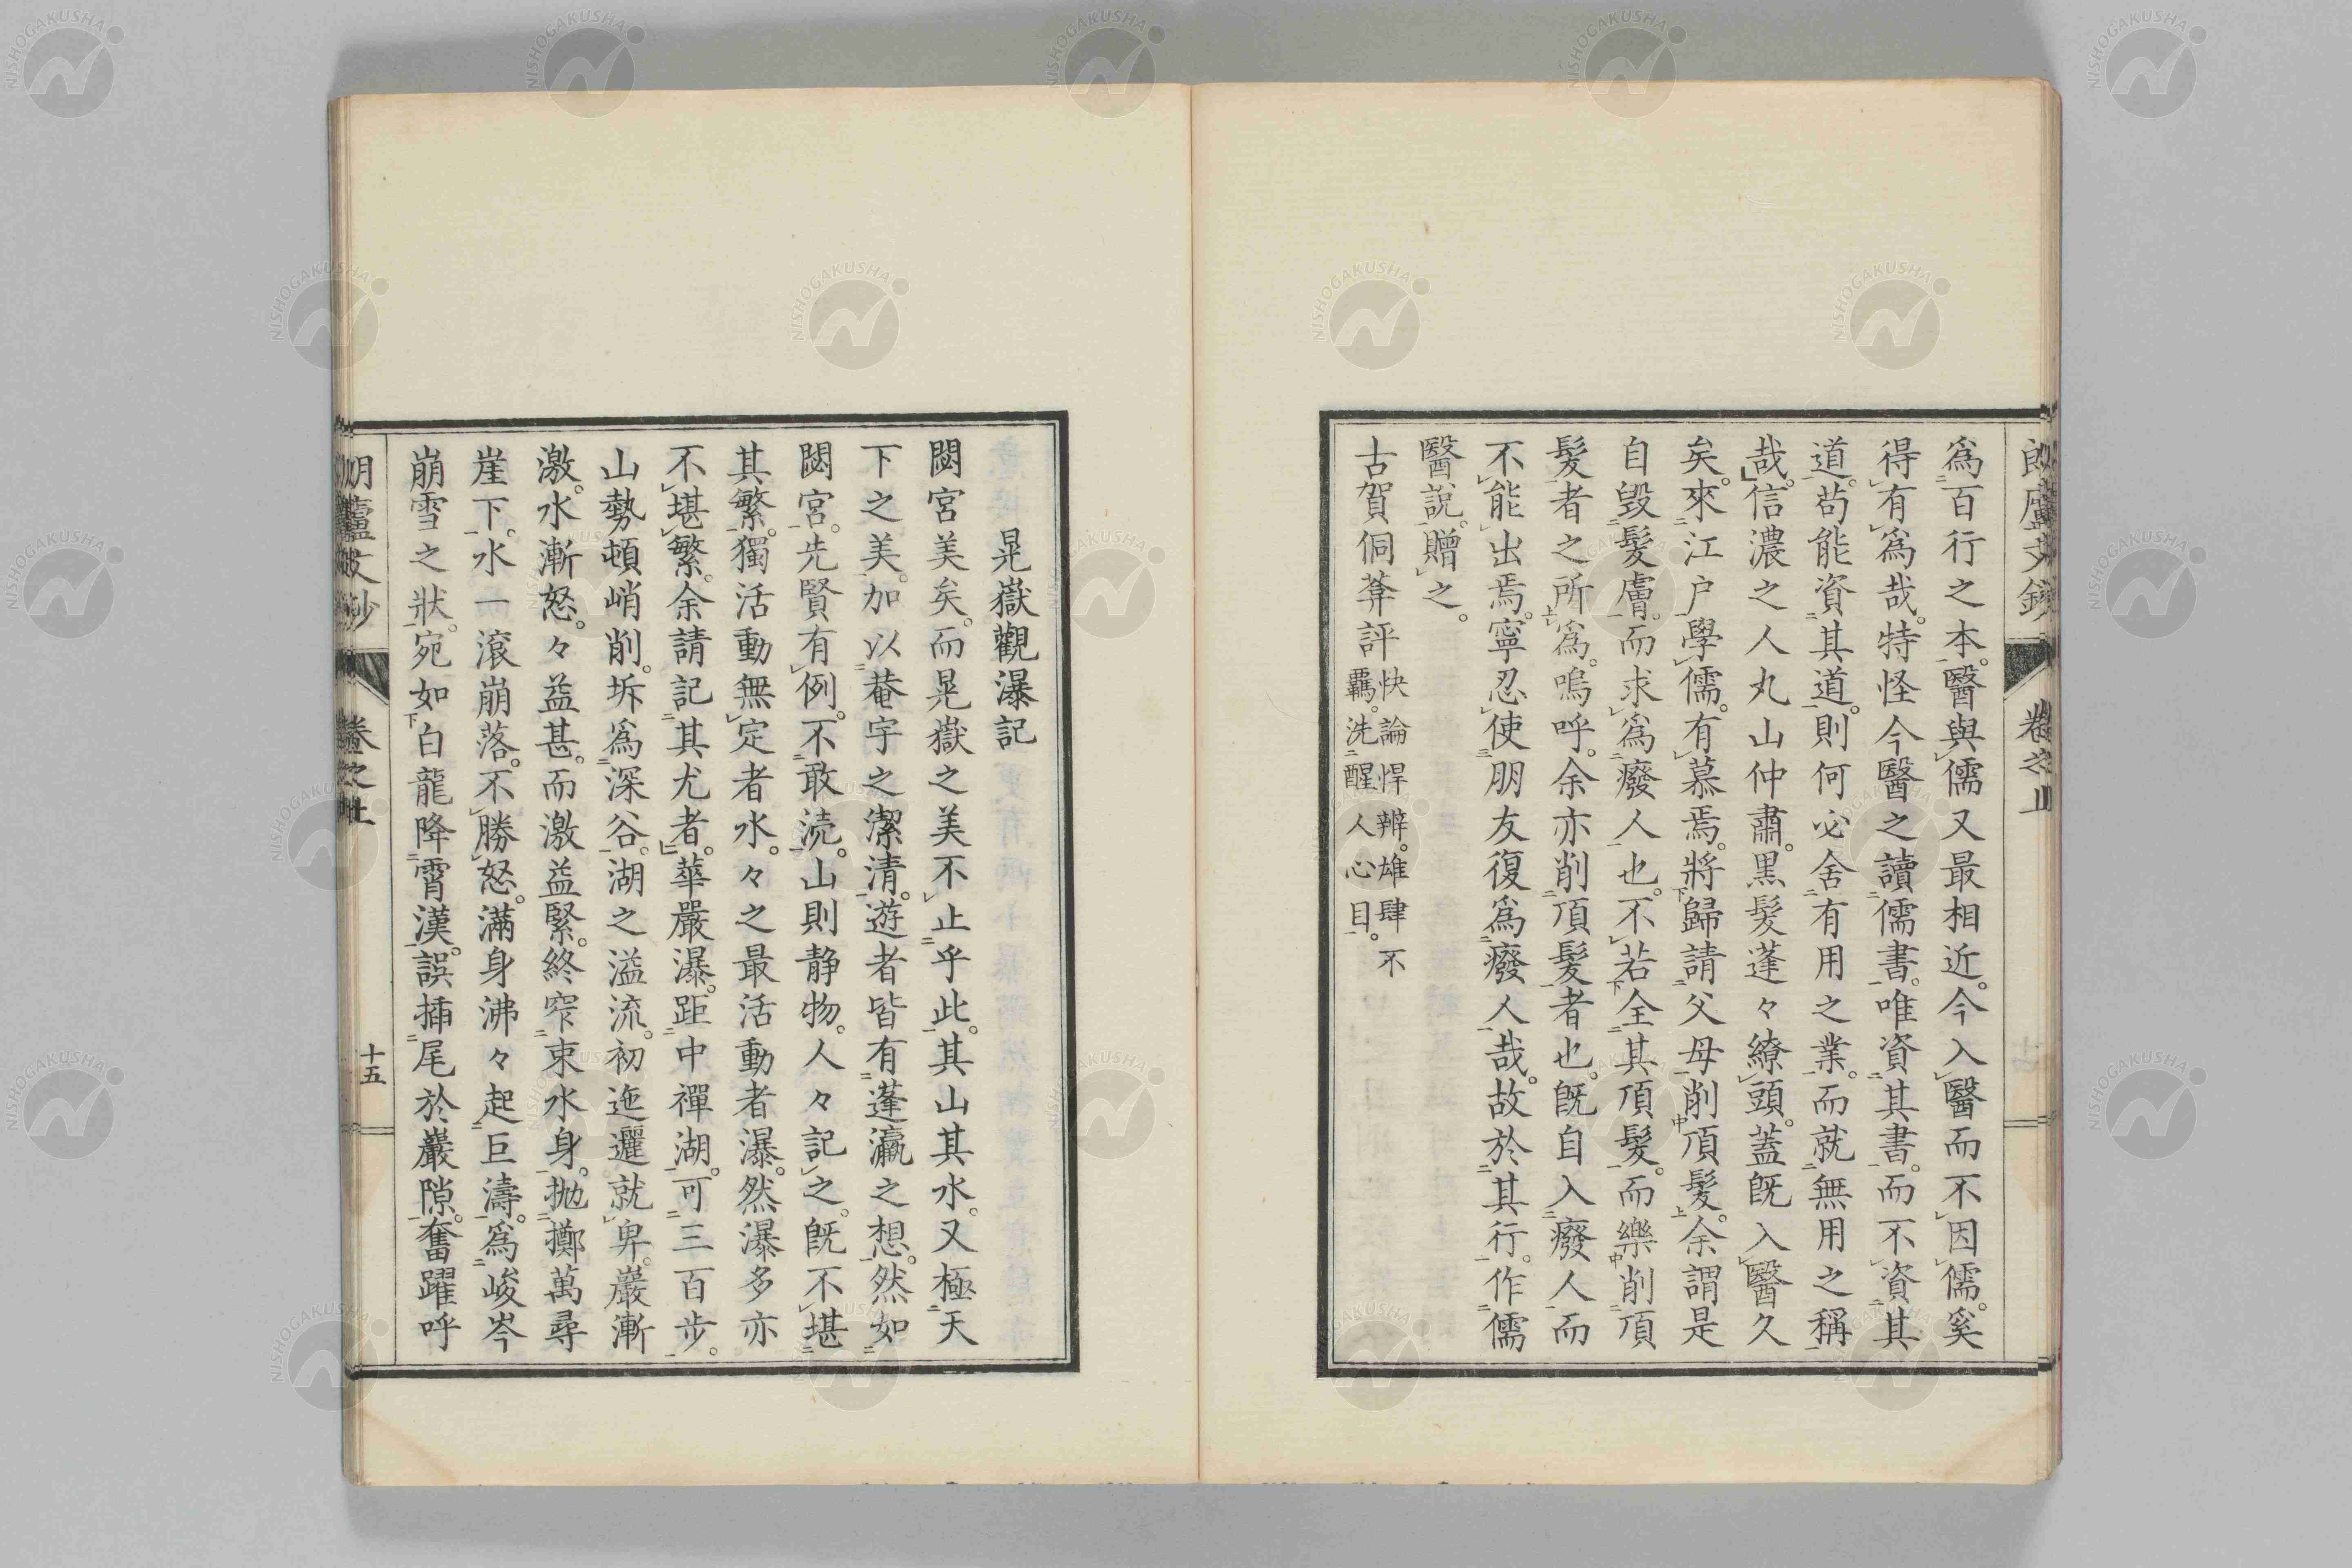 爲百行之本。醫與儒又最相近。今入醫而不因儒。奚
得有爲哉。特怪今醫之讀儒書。唯資其書。而不資其
道。苟能資其道。則何必舍有用之業。而就無用之稱
哉。信濃之人丸山仲肅。黒髮蓬々繚頭。蓋既入醫久
矣。來江戶學儒。有慕焉。將歸請父母削頂髮。余謂是
自毀髮膚。而求爲廢人也。不若全其頂髮。而樂削頂
髮者之所爲。嗚呼。余亦削頂髮者也。既自入廢人而
不能出焉。寧忍使朋友復爲癈人哉。故於其行。作儒
醫說。贈之。
古賀侗葊評 快論悍辨。雄肆不
羈。洗醒人心目。
晃嶽觀瀑記
閟宮美矣。而晃嶽之美不止乎此。其山其水。又極天
下之美。加以菴宇之潔清。遊者皆有蓬瀛之想。然如
閟宮。先賢有例。不敢涜。山則静物。人々記之。既不堪
其繁。獨活動無定者水。々之最活動者瀑。然瀑多亦
不堪繁。余請記其尤者。華嚴瀑。距中禪湖。可三百步。
山勢頓峭削。坼爲深谷。湖之溢流。初迤邐就卑。巖漸
激。水漸怒。々益甚。而激益緊。終窄束水身。抛擲萬尋
崖下。水一滾崩落。不勝怒。滿身沸々起巨濤。爲峻岑
崩雪之狀。宛如白龍降霄漢。誤揷尾於巖隙。奮躍呼
十五